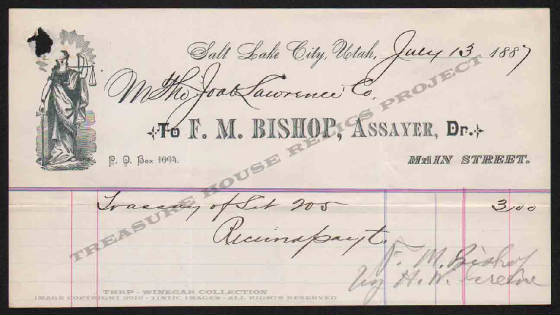 Salt Lake City, Utah, July 13 1887
M The Joab Lawrence Co.
To F. M. BISHOP, ASSAYER, Dr.
P. O. Box 1094.
MAIN STREET.
To assay of Lot 205 3.00
Received payt
F. M. Bishop
by H. W.
TREASURE HOUSE RELICS PROJECT
THRP - WINEGAR COLLECTION
IMAGE COPYRIGHT 2010 - TINTIC IMAGES - ALL RIGHTS RESERVED